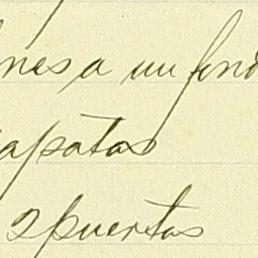 nes a un fond
apatas
2 puertas